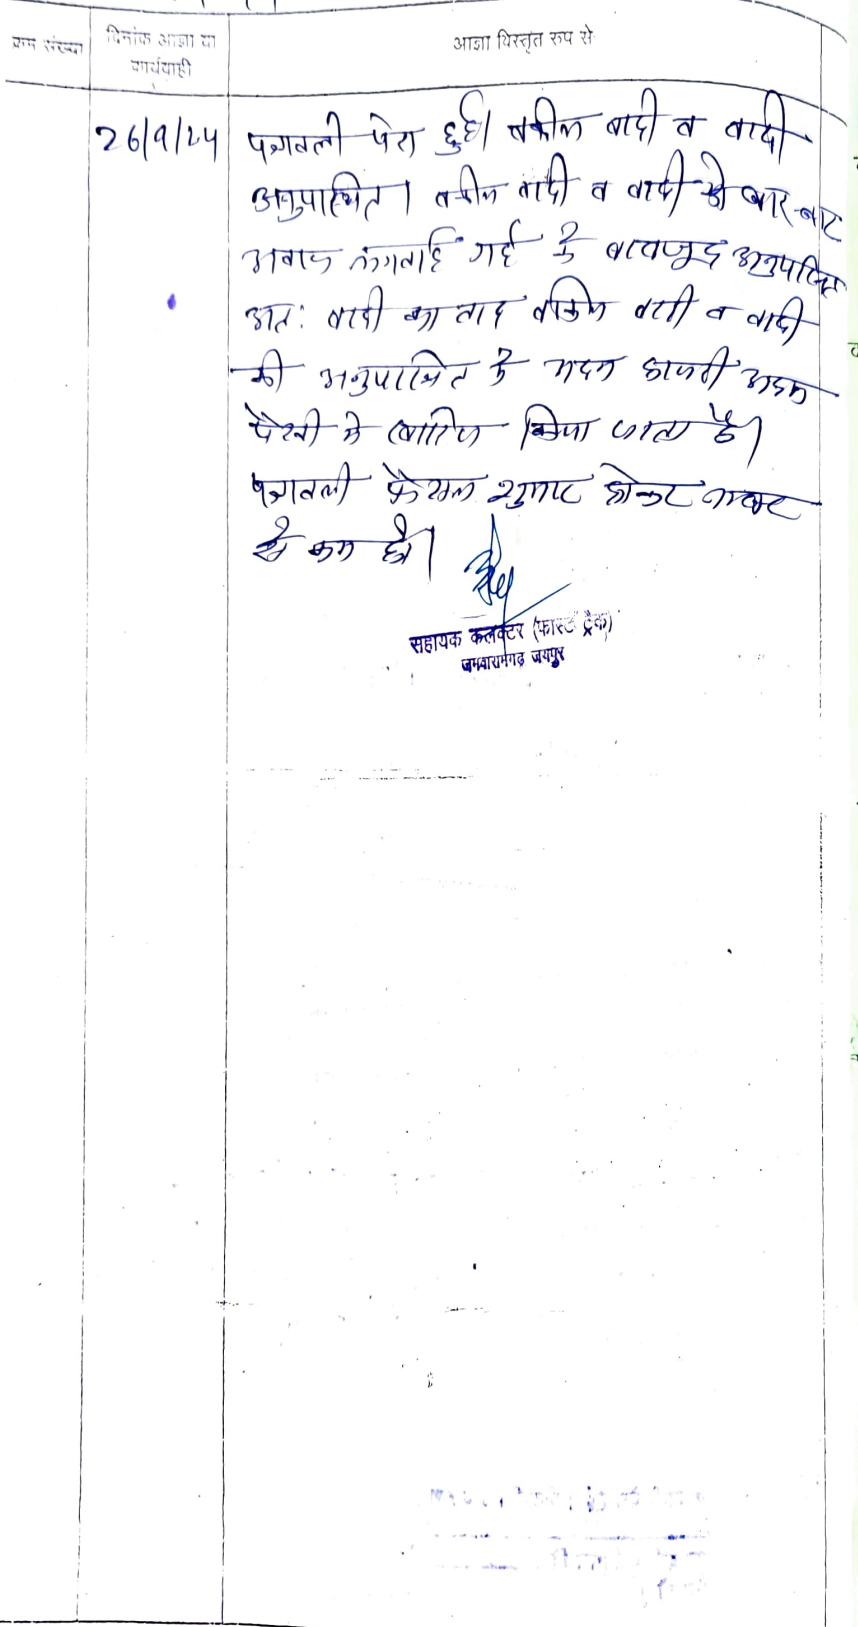 क्रम संख्या
दिनांक आज्ञा या कार्यवाही
आज्ञा विस्तृत रूप से
26/9/24
पत्रावली पेश हुई। वकील वादी व वादी
अनुपस्थित। वकील वादी व वादी को बार-बार
आवाज लगवाई गई के बावजूद अनुपस्थित
अत: वादी का वाद वकील वादी व वादी
की अनुपस्थित के अदम हाजरी अदम
पैरवी मे खारिज किया जाता है।
पत्रावली फैसल शुमार होकर नम्बर
से कम हो।
सहायक कलक्टर (फास्ट ट्रैक)
जमवारामगढ़ जयपुर